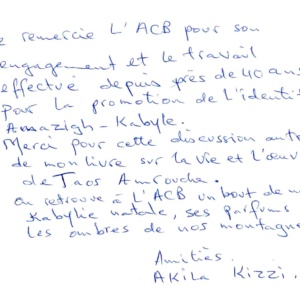 remercie L'ACB pour son
engagement et le travail
effectué depuis près de 40 ans
pour la promotion de l'identi
Amazigh-Kabyle.
Merci pour cette discussion auto
de mon livre sur la vie et l'œuv
de Taos Amrouche.
On retrouve à L'ACB un bout de
Kabylie natale, ses parfums
les ombres de nos montagne
Amitiés.
AKILA KIZZI.